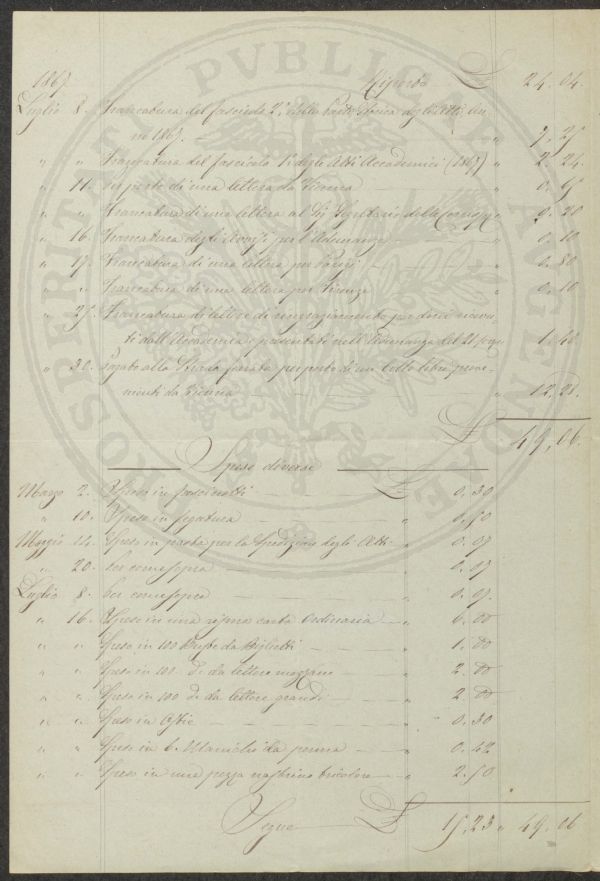 PROSPERITAS PVBLICAE AVGENDAE
1867. Riporto £ 24. 04.
Luglio 8. Francatura del fascicolo 2° della Parte Storica degli Atti An-
no 1867. — " 7. 27
" " Francatura del fascicolo 1° degli Atti Accademici (1867) " 2. 24.
" 11. per porto di una lettera da Vienna — "
" " Francatura di una lettera al Sig. Segretario della " 0. 20
" 16. Francatura degli avvisi per l'Adunanza — " 0. 10
" 17. Francatura di una lettera per Parigi — " 0. 80
" " Francatura di una lettera per Firenze — " 0. 10
" 27. Francatura di lettere di ringraziamento per doni ricevu-
ti dall'Accademia e presentati nell'Adunanza del 21 " 1. 40
" 30. Pagato alla Strada ferrata per porto di un collo libri prove-
nienti da Vienna — " 12. 21.
£ 49. 06.
Spese diverse
Marzo 2. Spese in — £ 0. 30
" 10. Spese in segatura — " 0. 50
Maggio 14. Spese in pasta per la spedizione degli Atti " 0. 07
" 20. per come sopra — " 0. 07
Luglio 8. per come sopra — " 0. 07.
" 16. Spese in una risma carta ordinaria — " 6. 00
" " Spese in 100 Buste da Biglietti — " 1. 00
" " Spese in 100 di da lettere mezzane — " 2. 00
" " Spese in 100 di da lettere grandi — " 2. 00
" " Spese in Ostie — " 0. 30
" " Spese in 6. Manichi da penna — " 0. 42
" " Spese in una pezza nastrino tricolore — " 2. 50
Segue £ 15. 23 " 49. 06